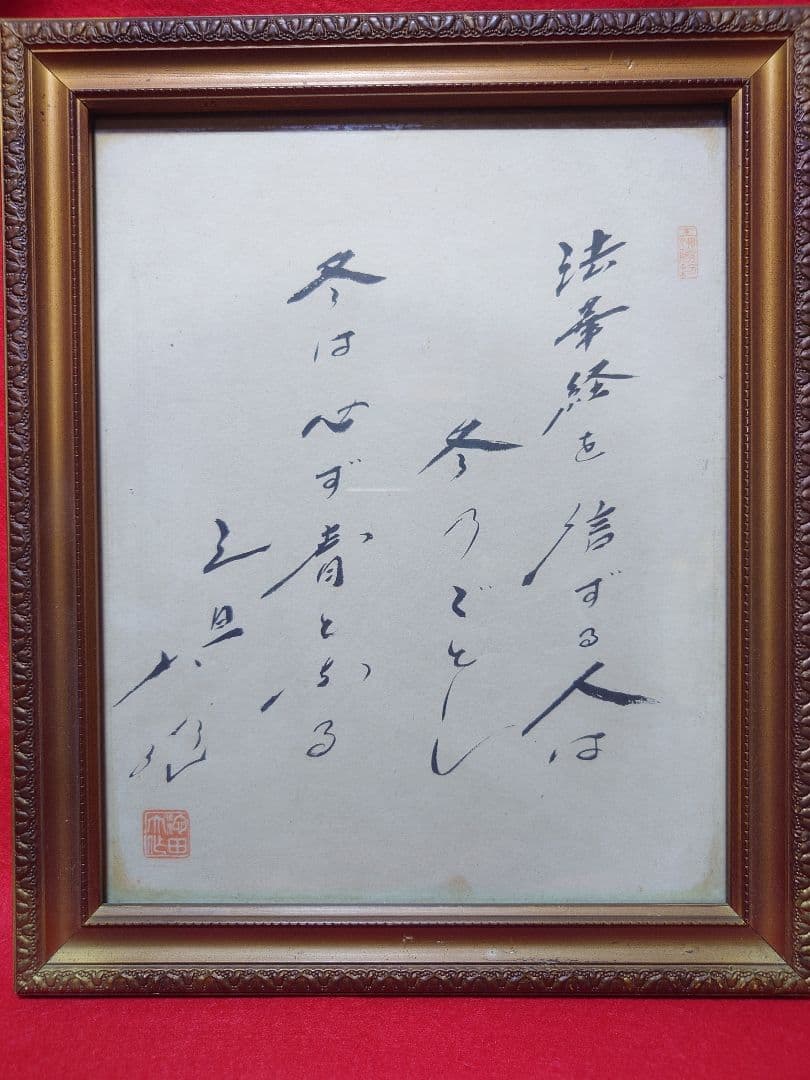 法華経を信ずる人は
冬のごとし
冬は必ず春となる
元旦
大作
池田大作